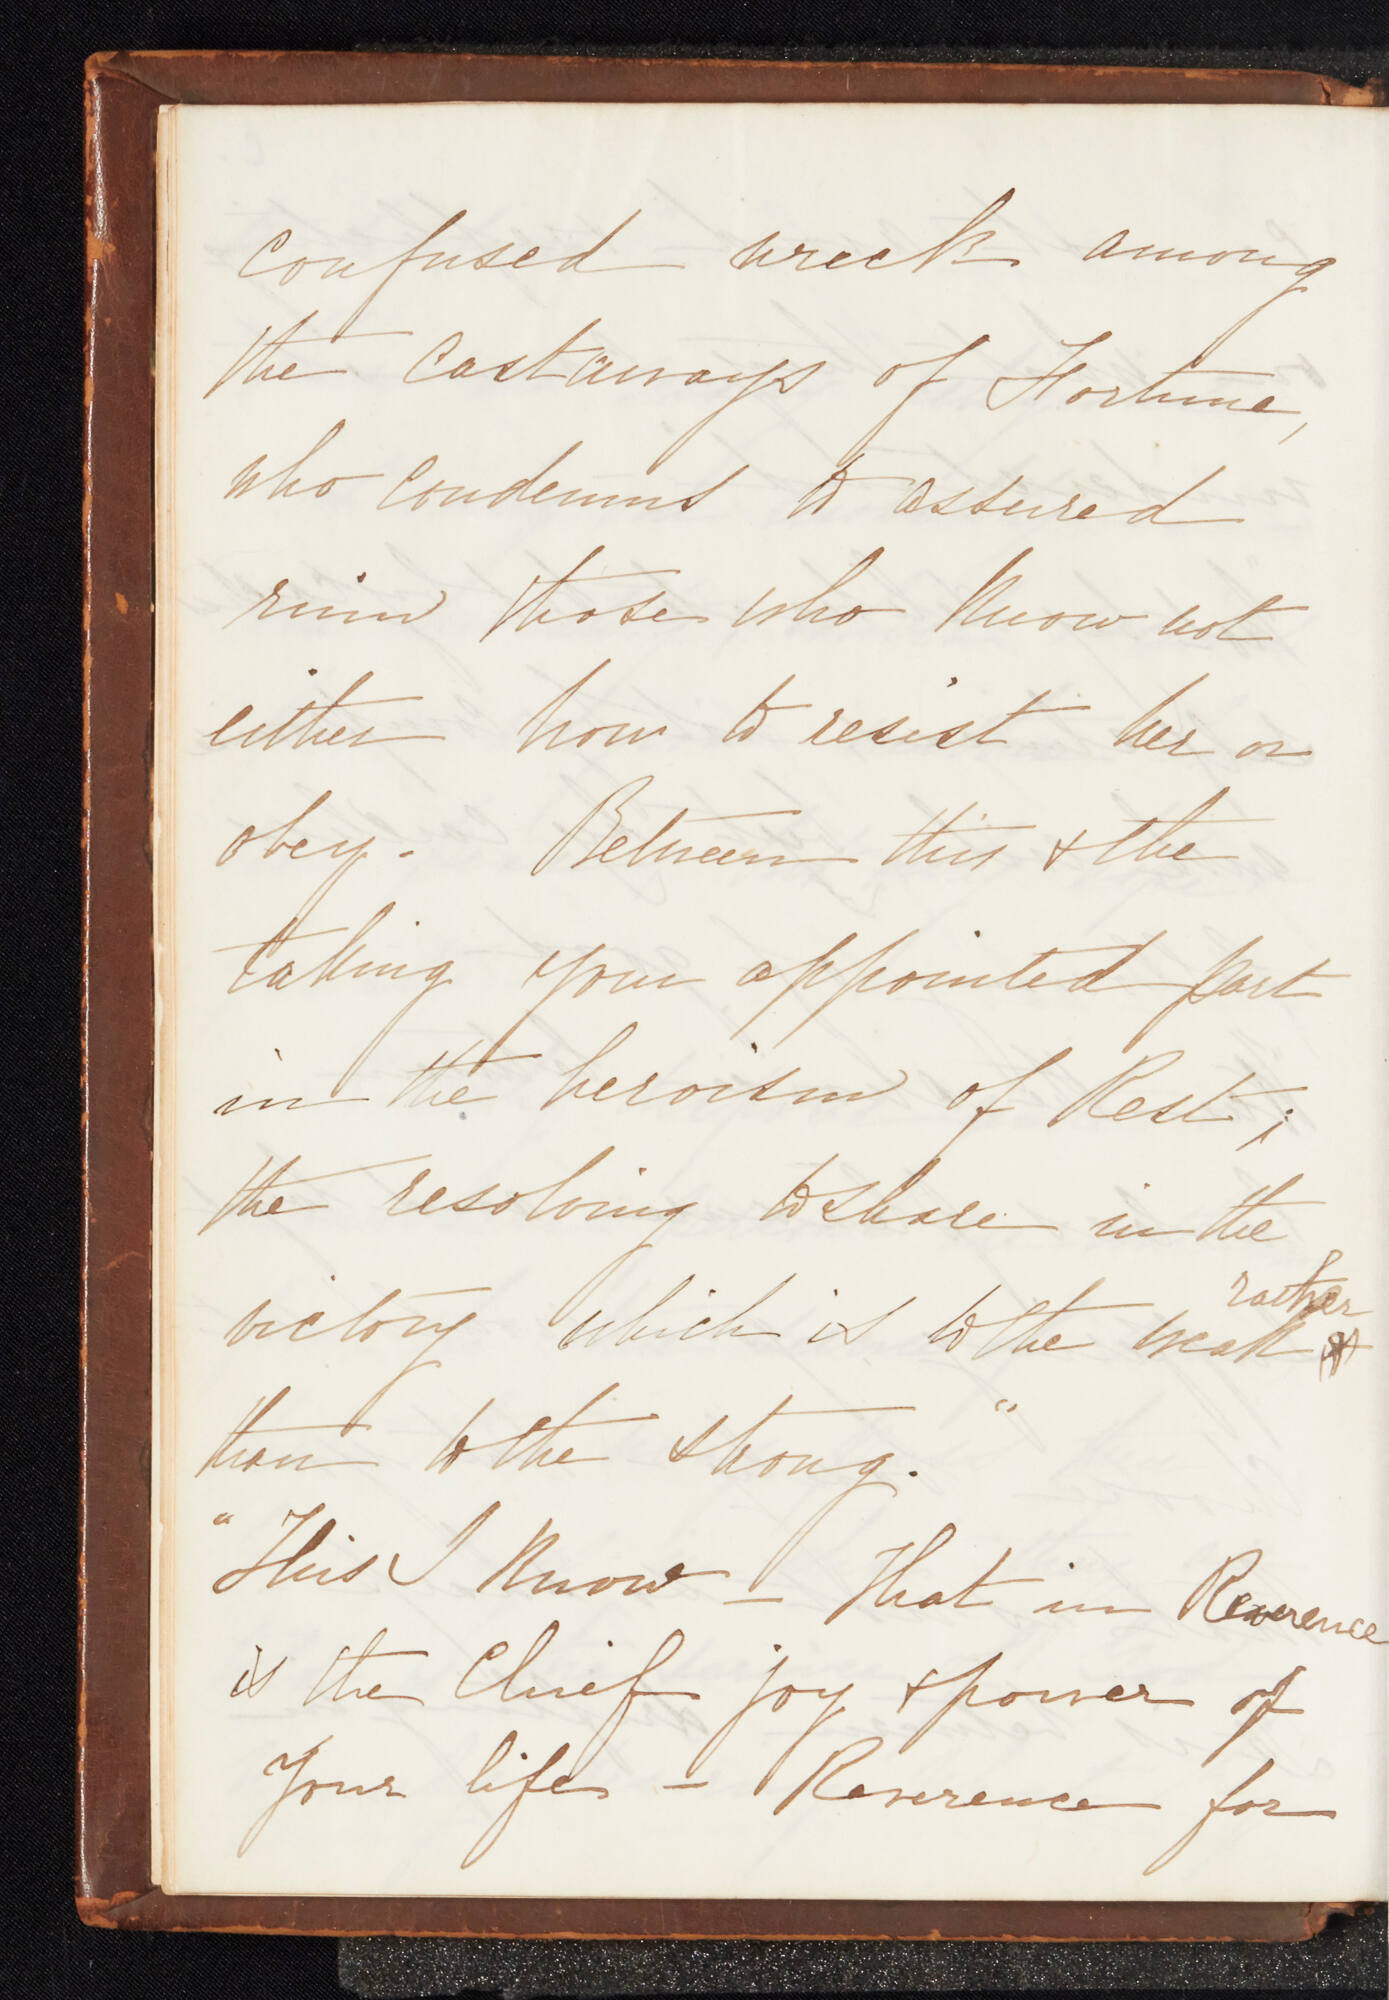 confused wreck among
the castaways of Fortune,
who condemns to assured
ruin those who know not
either how to resist her or
obey. Between this & the
taking your appointed part
in the heroism of Rest;
the resolving to share in the
victory which is to the weak rather
than to the strong."
"This I know – That in Reverence
is the Chief joy & power of
Your life – Reverence for